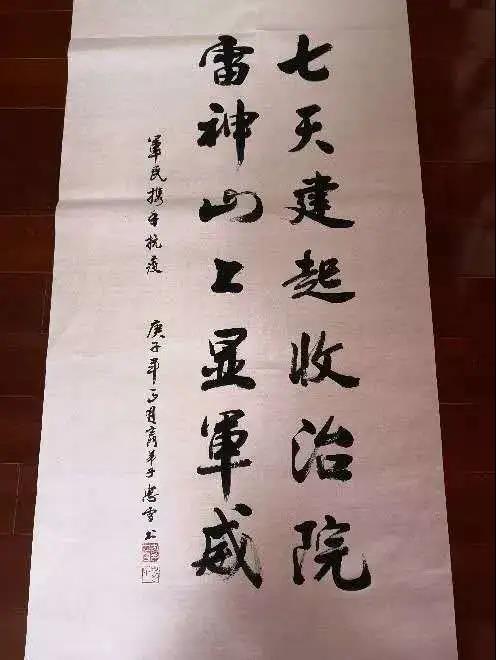 七天建起收治院
雷神山上显軍威
軍民携手抗疫
庚子年正月齊羊子惠雪书